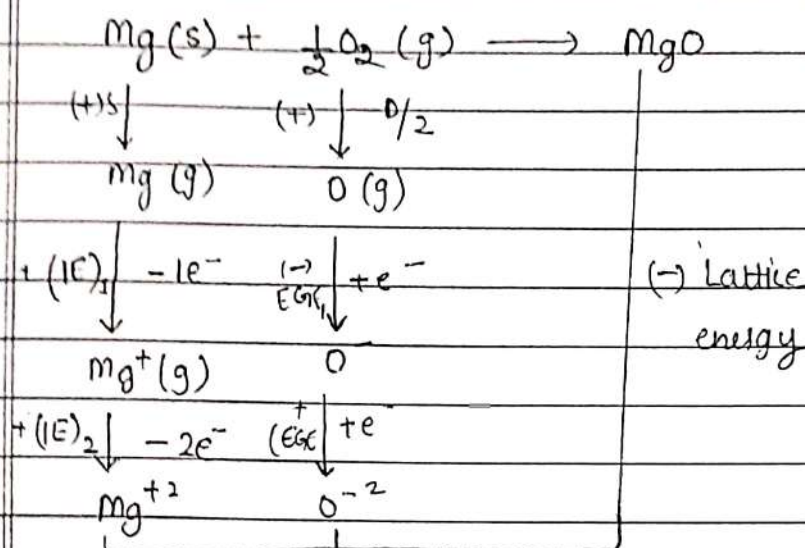 Mg(s) + 1/2 O₂ (g) ⟶ MgO
(+)S ↓ (+) ↓ D/2
Mg (g) O (g)
+ (IE)₁ ↓ - 1e⁻ (-) EGE₁ ↓ + e⁻ (-) Lattice energy
Mg⁺(g) O
+ (IE)₂ ↓ - 2e⁻ + (EGE ↓ + e
Mg⁺² O⁻²